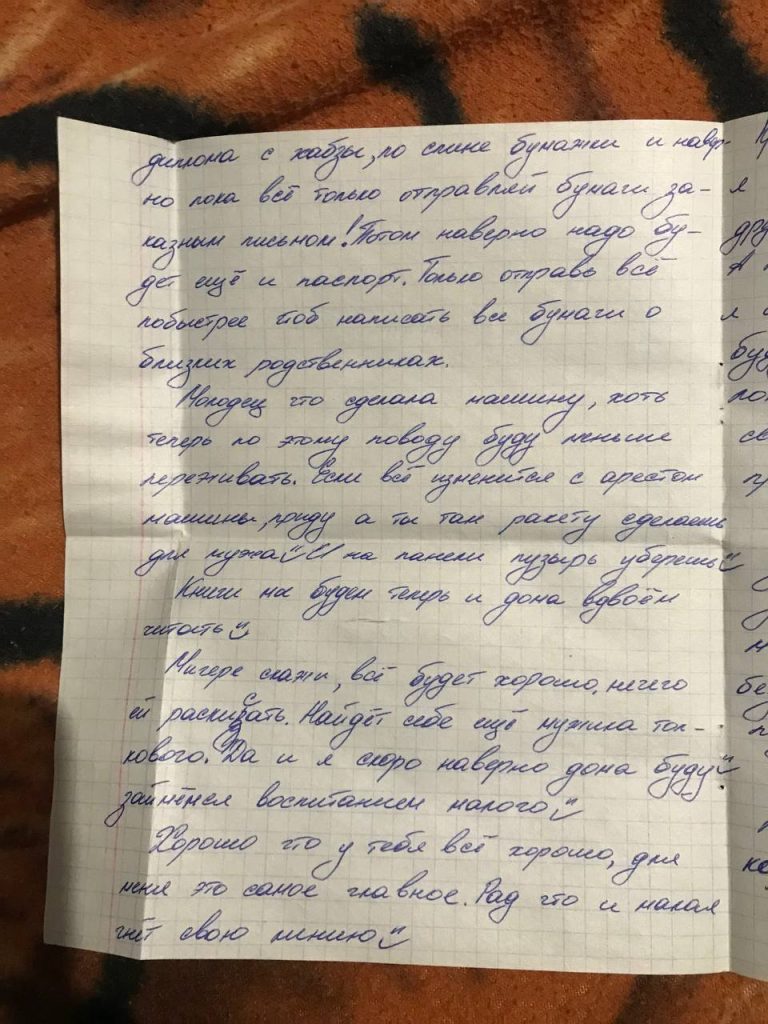 диплома с хабзы, по спине бумажки и навер-
но пока всё только отправляй бумаги за-
казным письмом! Потом наверно надо бу-
дет ещё и паспорт. Только отправь всё
побыстрее чтоб написать все бумаги о
близких родственниках.
Молодец что сделала машину, хоть
теперь по этому поводу буду меньше
переживать. Если всё изменится с арестом
машины, приду а ты там ракету сделаешь
для мужа И на панели пузырь уберёшь
Книги мы будем теперь и дома вдвоём
читать
Мигере скажи, всё будет хорошо, нечего
ей раскисать. Найдёт себе ещё мужика тол-
кового. Да и я скоро наверно дома буду
займёмся воспитанием малого
Хорошо что у тебя всё хорошо, для
меня это самое главное. Рад что и малая
гнёт свою линию
я
дру
А
я
буд
пол
св
пр
м
бе
п
ке